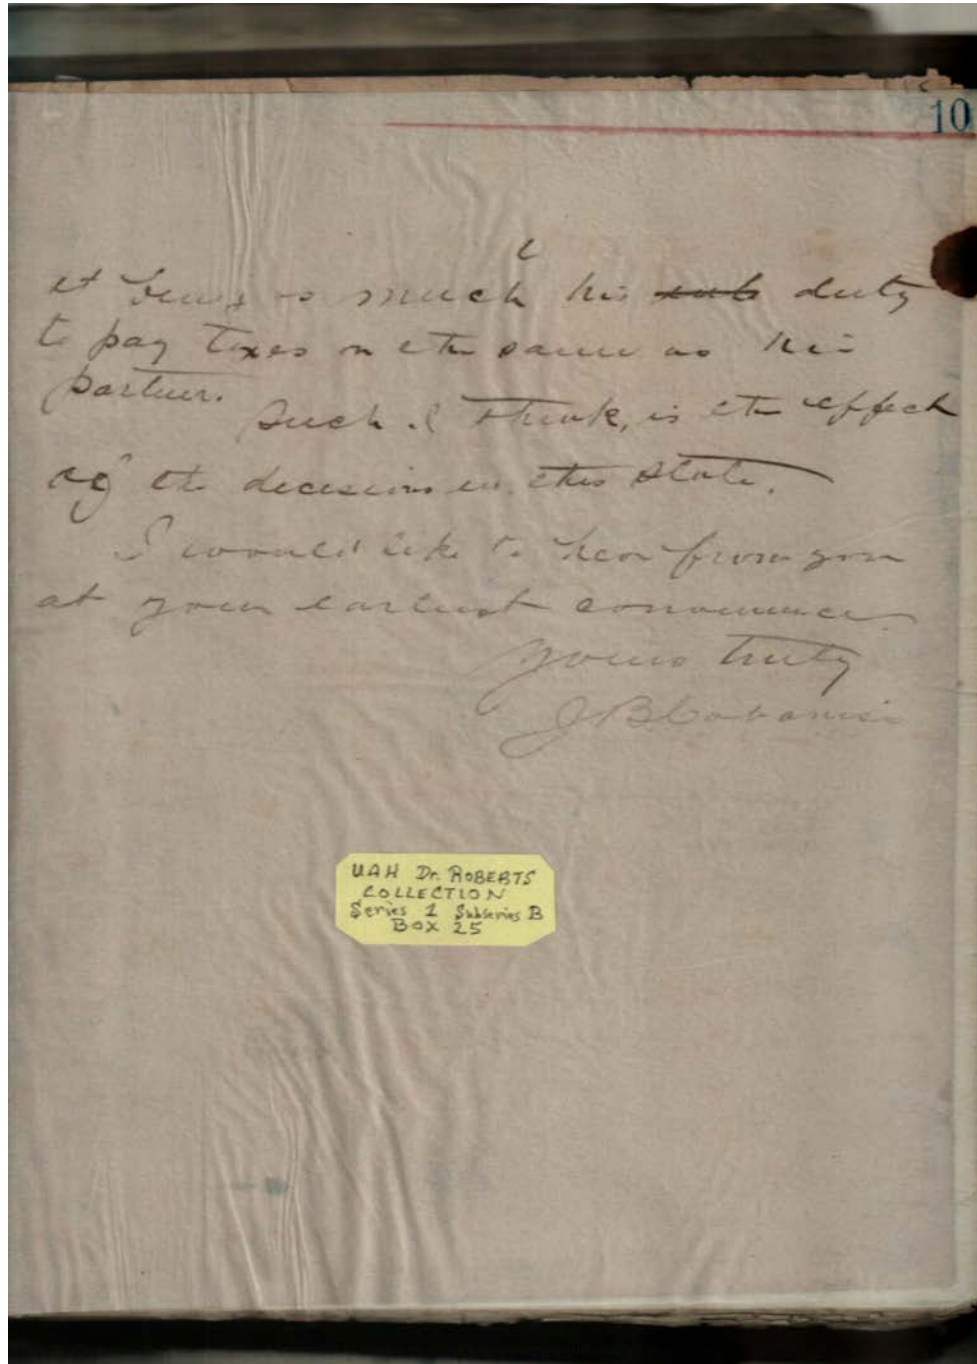 10
it being as much his duty
to pay taxes on the same as his
partner.
Such I think, is the effect
of the decisions in this State.
I would like to hear from you
at your earliest convenience.
Yours truly
J B Cabaniss
UAH Dr. ROBERTS
COLLECTION
Series 1 Subseries B
BOX 25